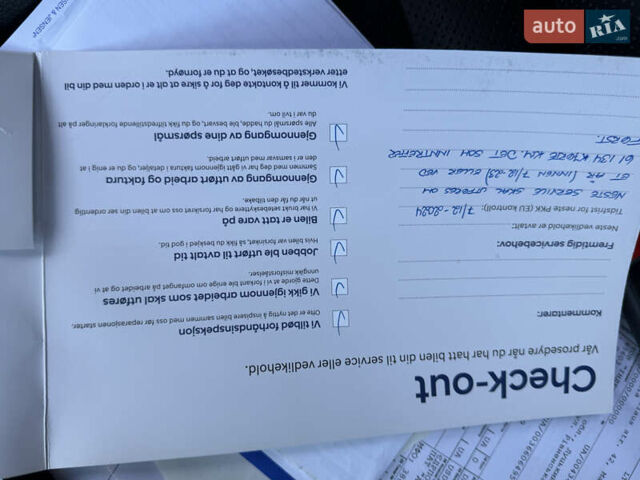 Check-out
Vår prosedyre når du har hatt bilen din til service eller vedlikehold.
Vi tilbød forhåndsinspeksjon
Ofte er det nyttig å inspisere bilen sammen med oss før reparasjonen starter.
Vi gikk igjennom arbeidet som skal utføres
Dette gjorde at vi i forkant ble enige om omfanget på arbeidet og at vi
unngikk misforståelser.
Jobben ble utført til avtalt tid
Hvis bilen var forsinket, så fikk du beskjed i god tid.
Bilen er tatt vare på
Vi har brukt setebeskyttere og har forsikret oss om at bilen din ser ordentlig
ut når du får den tilbake.
Gjennomgang av utført arbeid og faktura
Sammen med deg har vi gått igjennom faktura i detaljer, og du er enig i at
den er i samsvar med utført arbeid.
Gjennomgang av dine spørsmål
Alle spørsmål du hadde, ble besvart, og du fikk tilfredstillende forklaringer på alt
du var i tvil om.
Vi kommer til å kontakte deg for å sikre at alt er i orden med din bil
etter verkstedbesøket, og at du er fornøyd.
Kommentarer:
Fremtidig servicebehov:
Neste vedlikehold er avtalt:
Tidsfrist for neste PKK (EU kontroll): 7/12-2024
NESTE SERVICE SKAL UTFØRES OM
ET ÅR (INNEN 7/12-23) ELLER VED
61 134 KJØRTE KM. DET SOM INNTREFFER
FØRST.
SEN & JENSEN
auto RIA